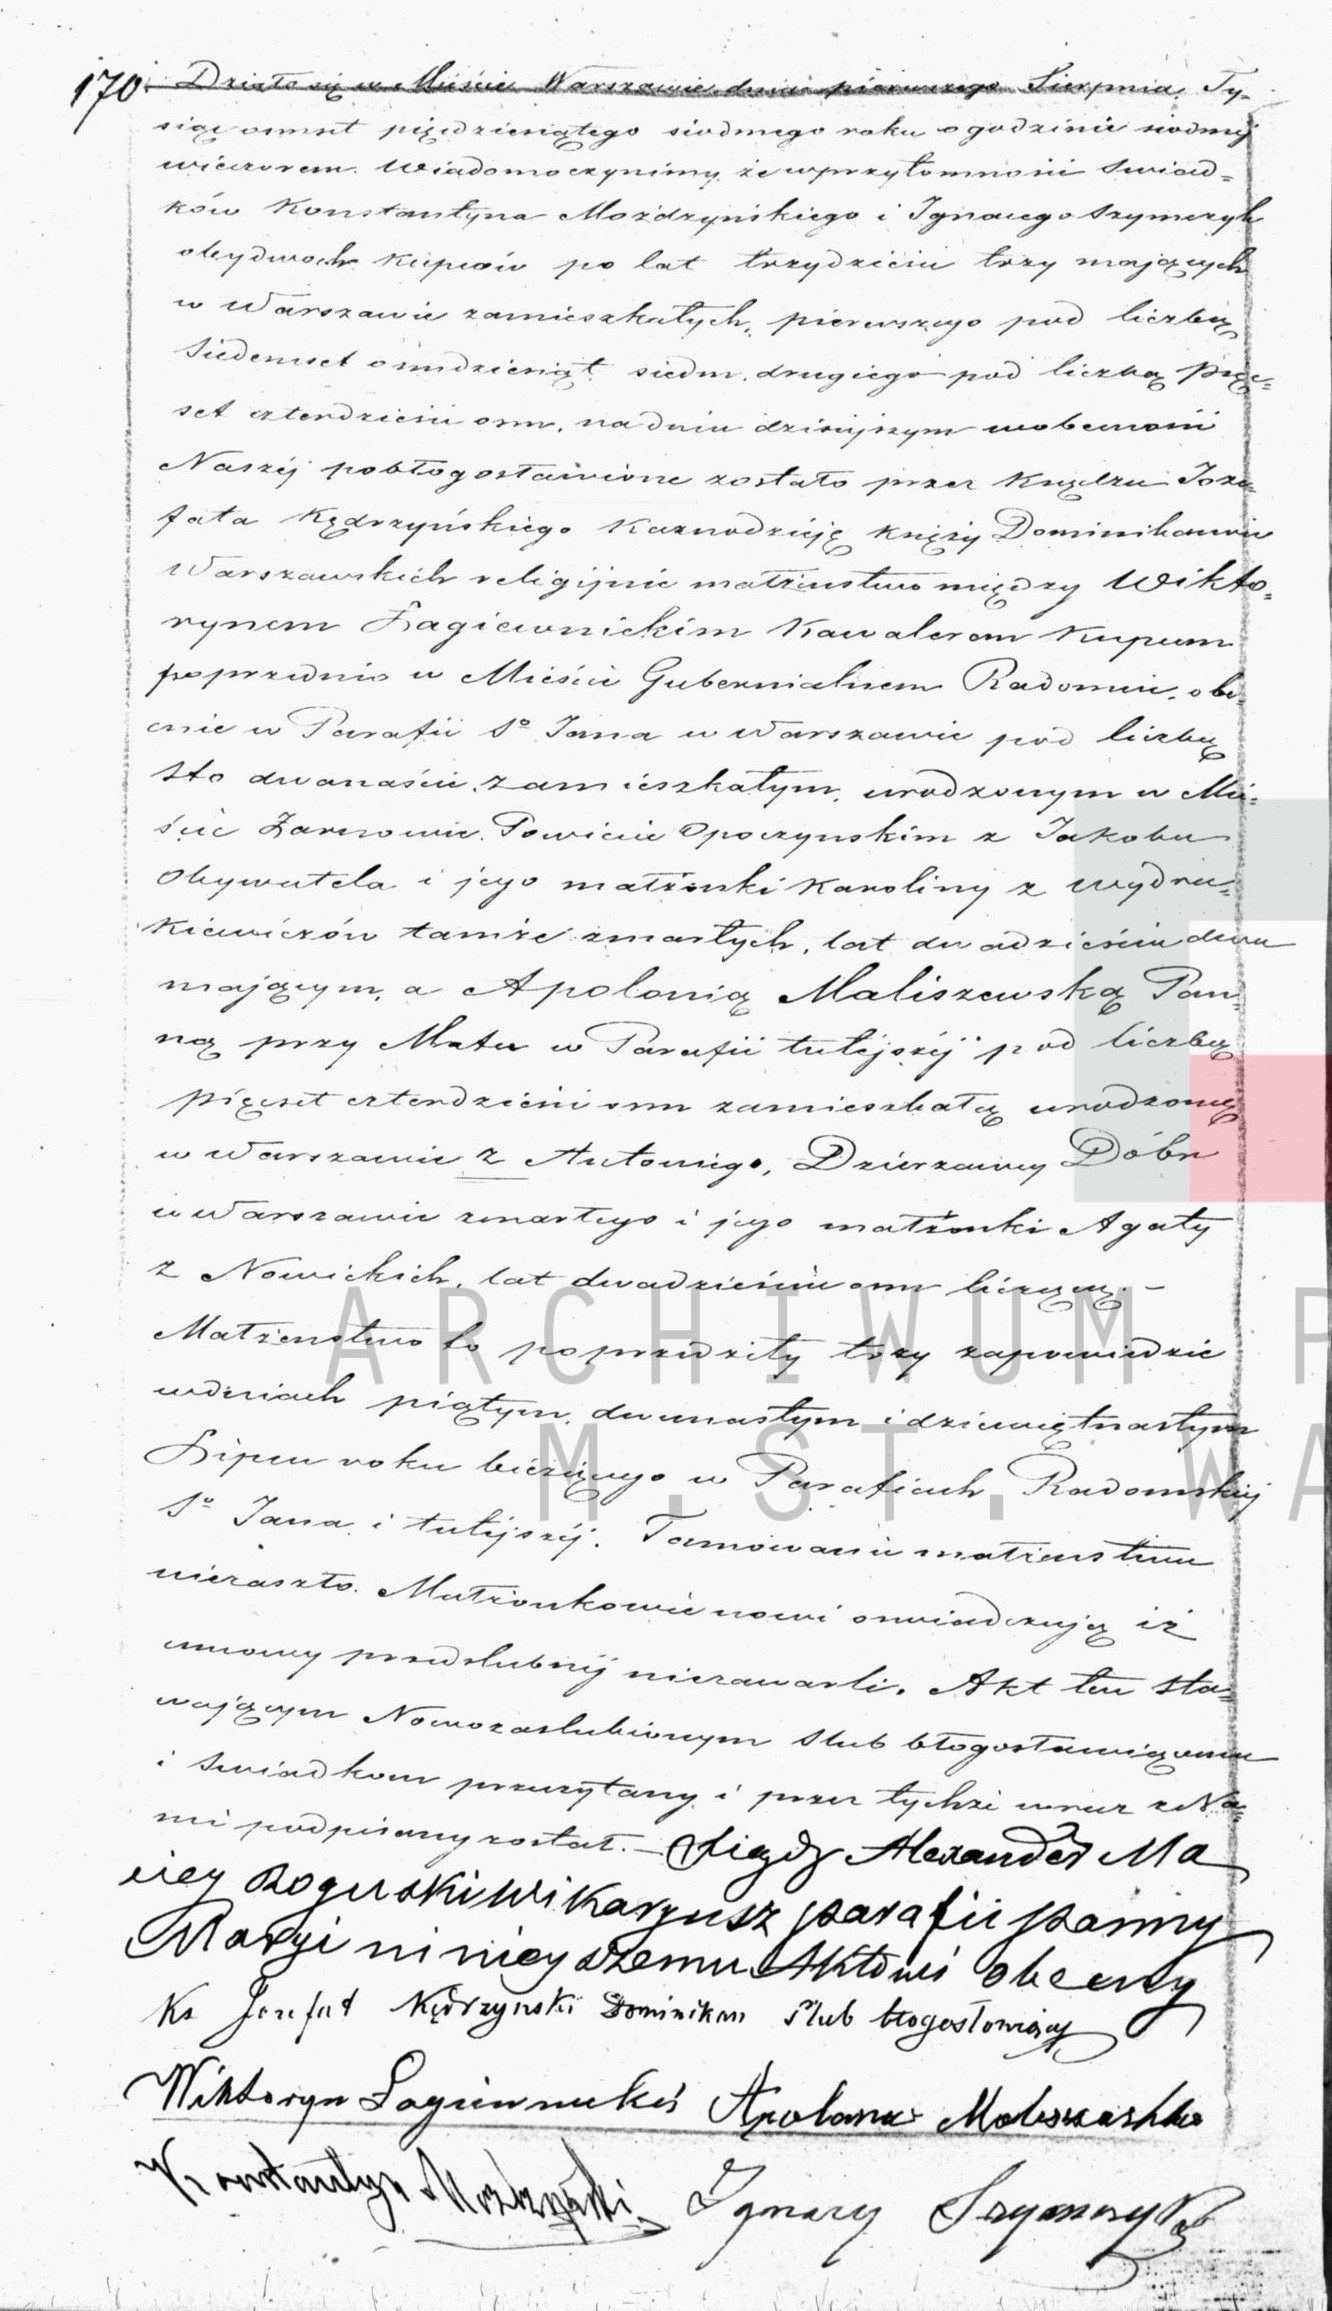 170. Działo się w Mieście Warszawie dnia pierwszego Sierpnia, Ty-
siąc osmset pięćdziesiątego siodmego roku o godzinie siodmej
wieczorem. Wiadomo czynimy że w przytomności Swiad=
ków Konstantyna Moździyńskiego i Ignacego Szymczyk
obydwoch Kupców po lat trzydzieści trzy mających
w Warszawie zamieszkałych, pierwszego pod liczbą
Siedemset osmdziesiąt siedm, drugiego pod liczbą pięć=
set czterdzieści osm, na dniu dzisiejszym w obecności
Naszéj pobłogosławione zostało przez Księdza Joza-
fata Kędrzyńskiego Kaznodzieję Księży Dominikanów
Warszawskich religijnie małżeństwo między Wikto=
rynem Łagiewnickim Kawalerem Kupcem
poprzednio w Mieście Gubernialnem Radomiu, obe-
cnie w Parafii Sº Jana w Warszawie pod liczbą
Sto dwanaście, zamieszkałym, urodzonym w Mie=
ście Żarnowie Powiecie Opoczynskim z Jakoba
Obywatela i jego małżonki Karoliny z Wydry=
kiewiczów tamże zmarłych, lat dwadzieścia dwa
mającym, a Apolonią Maliszewską Pan=
ną przy Matce w Parafii tutejszéj pod liczbą
pięćset czterdzieści osm zamieszkałą urodzoną
w Warszawie z Antoniego, Dzierzawcy Dóbr
w Warszawie zmarłego i jego małżonki Agaty
z Nowickich, lat dwadzieścia osm liczącą. –
Małżeństwo to poprzedziły trzy zapowiedzie
w dniach piątym, dwunastym i dziewiętnastym
Lipca roku bieżącego w Parafiach Radomskiej
Sº Jana i tutejszéj. Tamowanie małżeństwa
niezaszło. Małżonkowie nowi oswiadczają iż
umowy przedslubnéj niezawarli. Akt ten Sta=
wającym Nowozaslubionym Slub błogosławiącemu
i Swiadkom przeczytany i przez tychże wraz z Na=
mi podpisany został. – Xiądz Alexander Ma
ciey Roguski Wikaryusz parafii panny
Maryi niniejszemu Aktowi obecny
Ks Jozefat Kędrzynski Dominikan Slub błogosłowiący
Wiktoryn Łagiewnicki Apolonia Maliszewska
Konstanty Ignacy Szymczyk
ARCHIWUM P
M.ST. WA